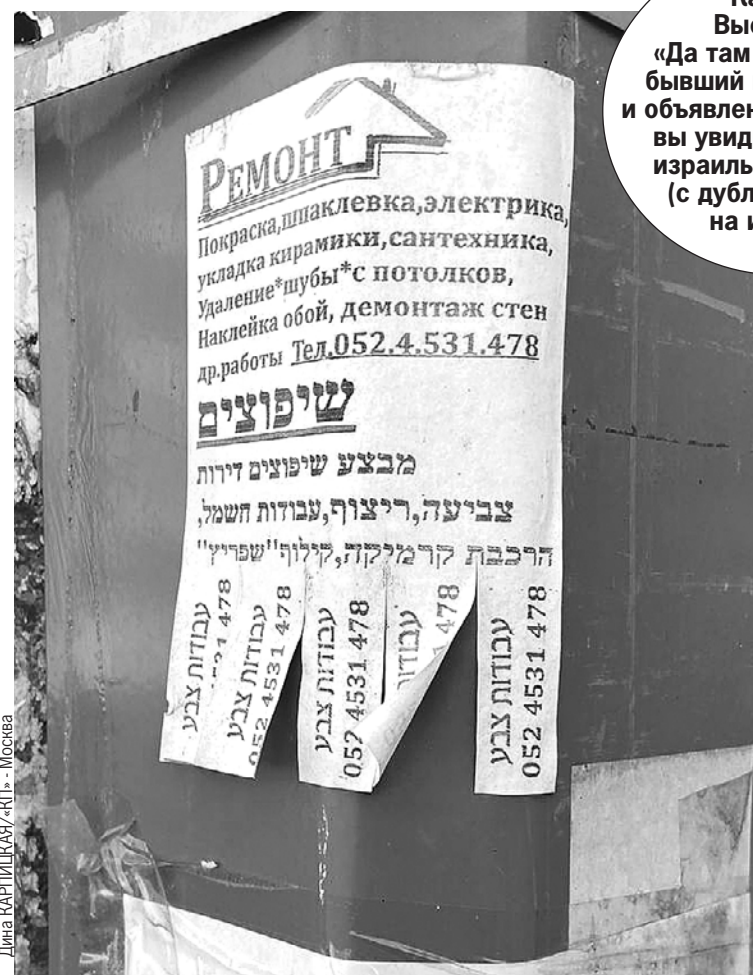 Выс
«Да там
бывший
и объявлен
вы увид
израиль
(с дубл
на и
РЕМОНТ
Покраска,шпаклевка,электрика,
укладка кирамики,сантехника,
Удаление*шубы*с потолков,
Наклейка обой, демонтаж стен
др.работы Тел.052.4.531.478
שיפוצים
מבצע שיפוצים דירות
צביעה,ריצוף,עבודות חשמל,
הרכבת קרמיקה,קילוף"שפריץ"
עבודות צבע
4531 478
עבודות צבע
052 4531 478
עבודות צבע
052 4531 478
עבודות
478
עבודות צבע
052 4531 478
Дина КАРПИЦКАЯ/«КП» - Москва